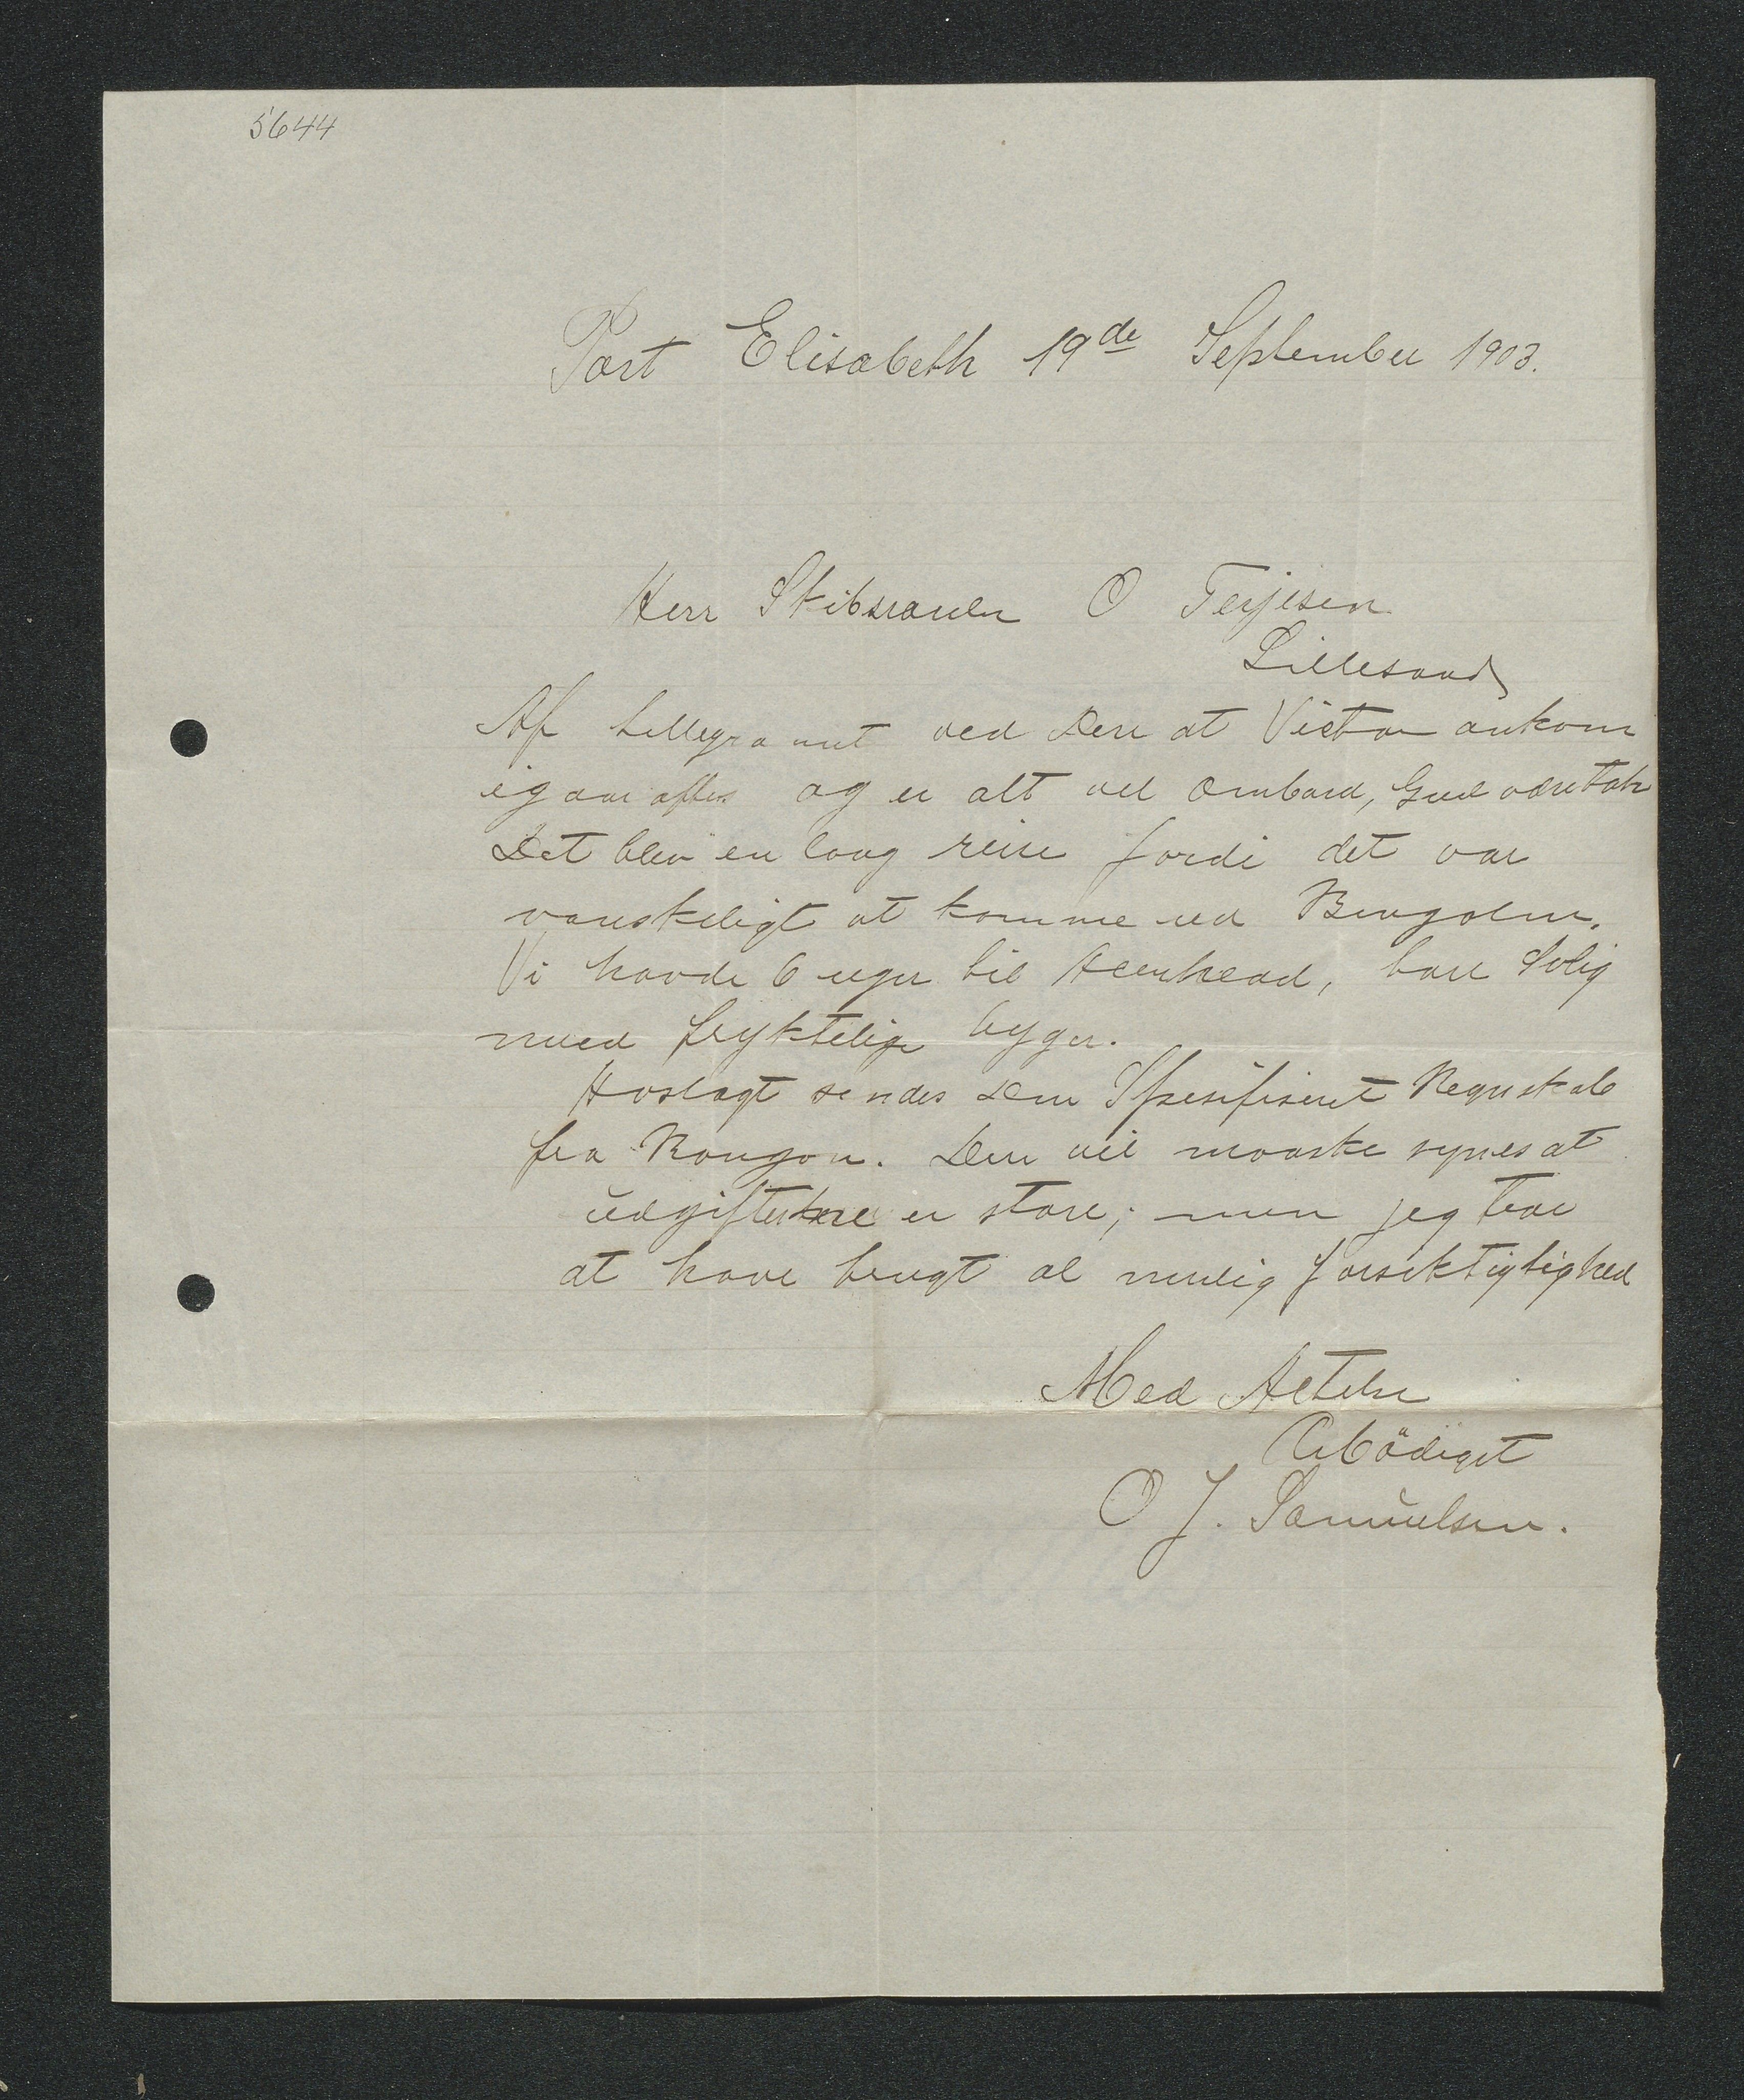 5644
Port Elisabeth 19de September 1903.
Herr Skibsreder O Terjesen
Lillesand
Af tellegramet ved Dere at Victor ankom
igaar aftes og er alt vel ombord, Gud være tak
Det blev en lang reise fordi det var
vanskeligt at komme ned Bengolen.
Vi havde 6 uger til Acenhead, bare Stlig
med fryktelige byger.
Hoslagt sendes Dem Spesifiseret Regnskab
fra Rangon. Dere vil maaske synes at
udgifterne er store; men jeg tror
at have brugt al mulig forsiktigtighed
Med Actelse
Erbödigst
O J. Samuelsen.